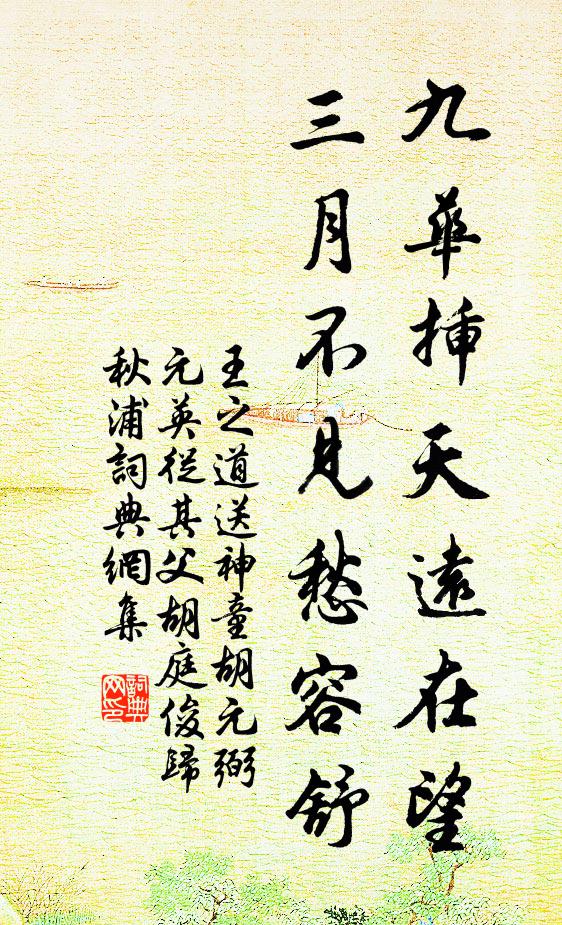 九華挿天遠在望
三月不見愁容舒
王之道送神童胡元弼
元英從其父胡庭俊歸
秋浦詞典網集
詞典网印